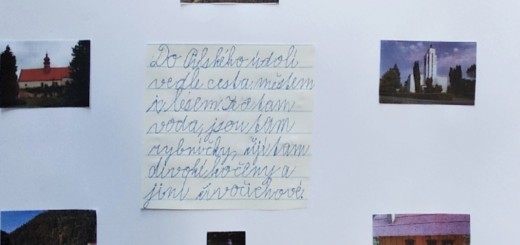 Do Pilského údolí
vedle cesta městem
i lesem. Je tam
voda, jsou tam
rybníčky, žijí tam
divoké kočeny a
jiní živočichové.